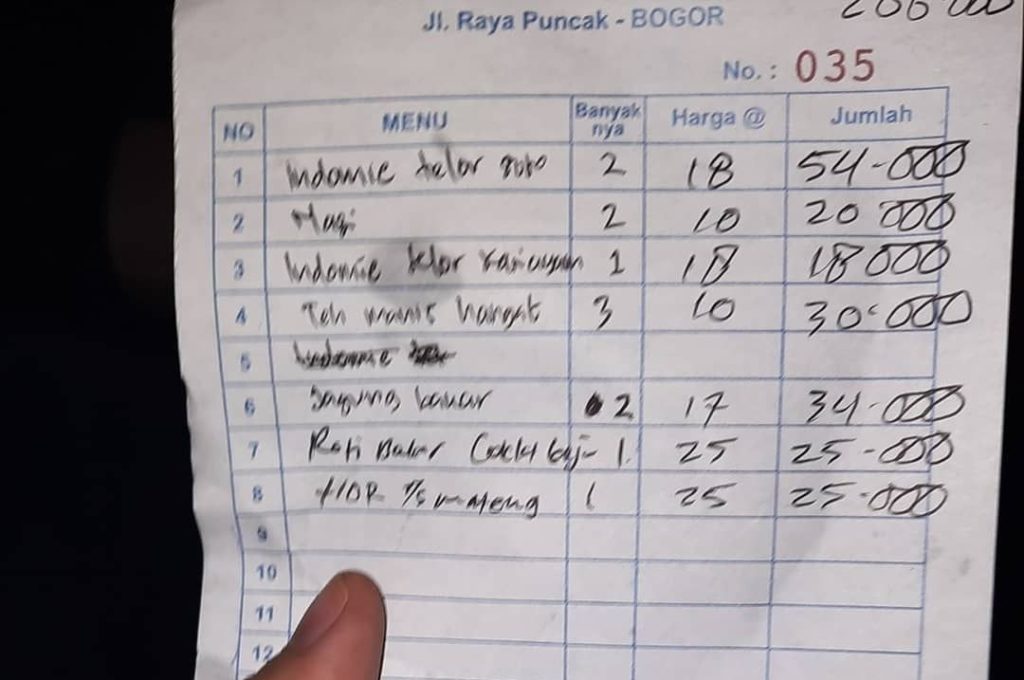 206 000
Jl. Raya Puncak - BOGOR
No. : 035
NO MENU Banyak nya Harga @ Jumlah
1 Indomie telor soto 2 18 54-000
2 Nasi 2 10 20 000
3 Indomie telor 1 18 18 000
4 Teh manis hangat 3 10 30.000
5 Indomie
6 Jagung bakar 2 17 34-000
7 Roti Bakar 1 25 25-000
8 1 25 25-000
9
10
11
12